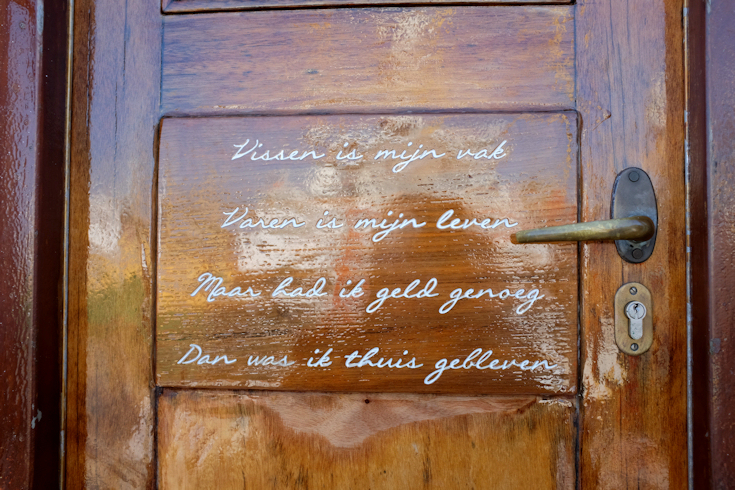 Vissen is mijn vak
Varen is mijn leven
Maar had ik geld genoeg
Dan was ik thuis gebleven